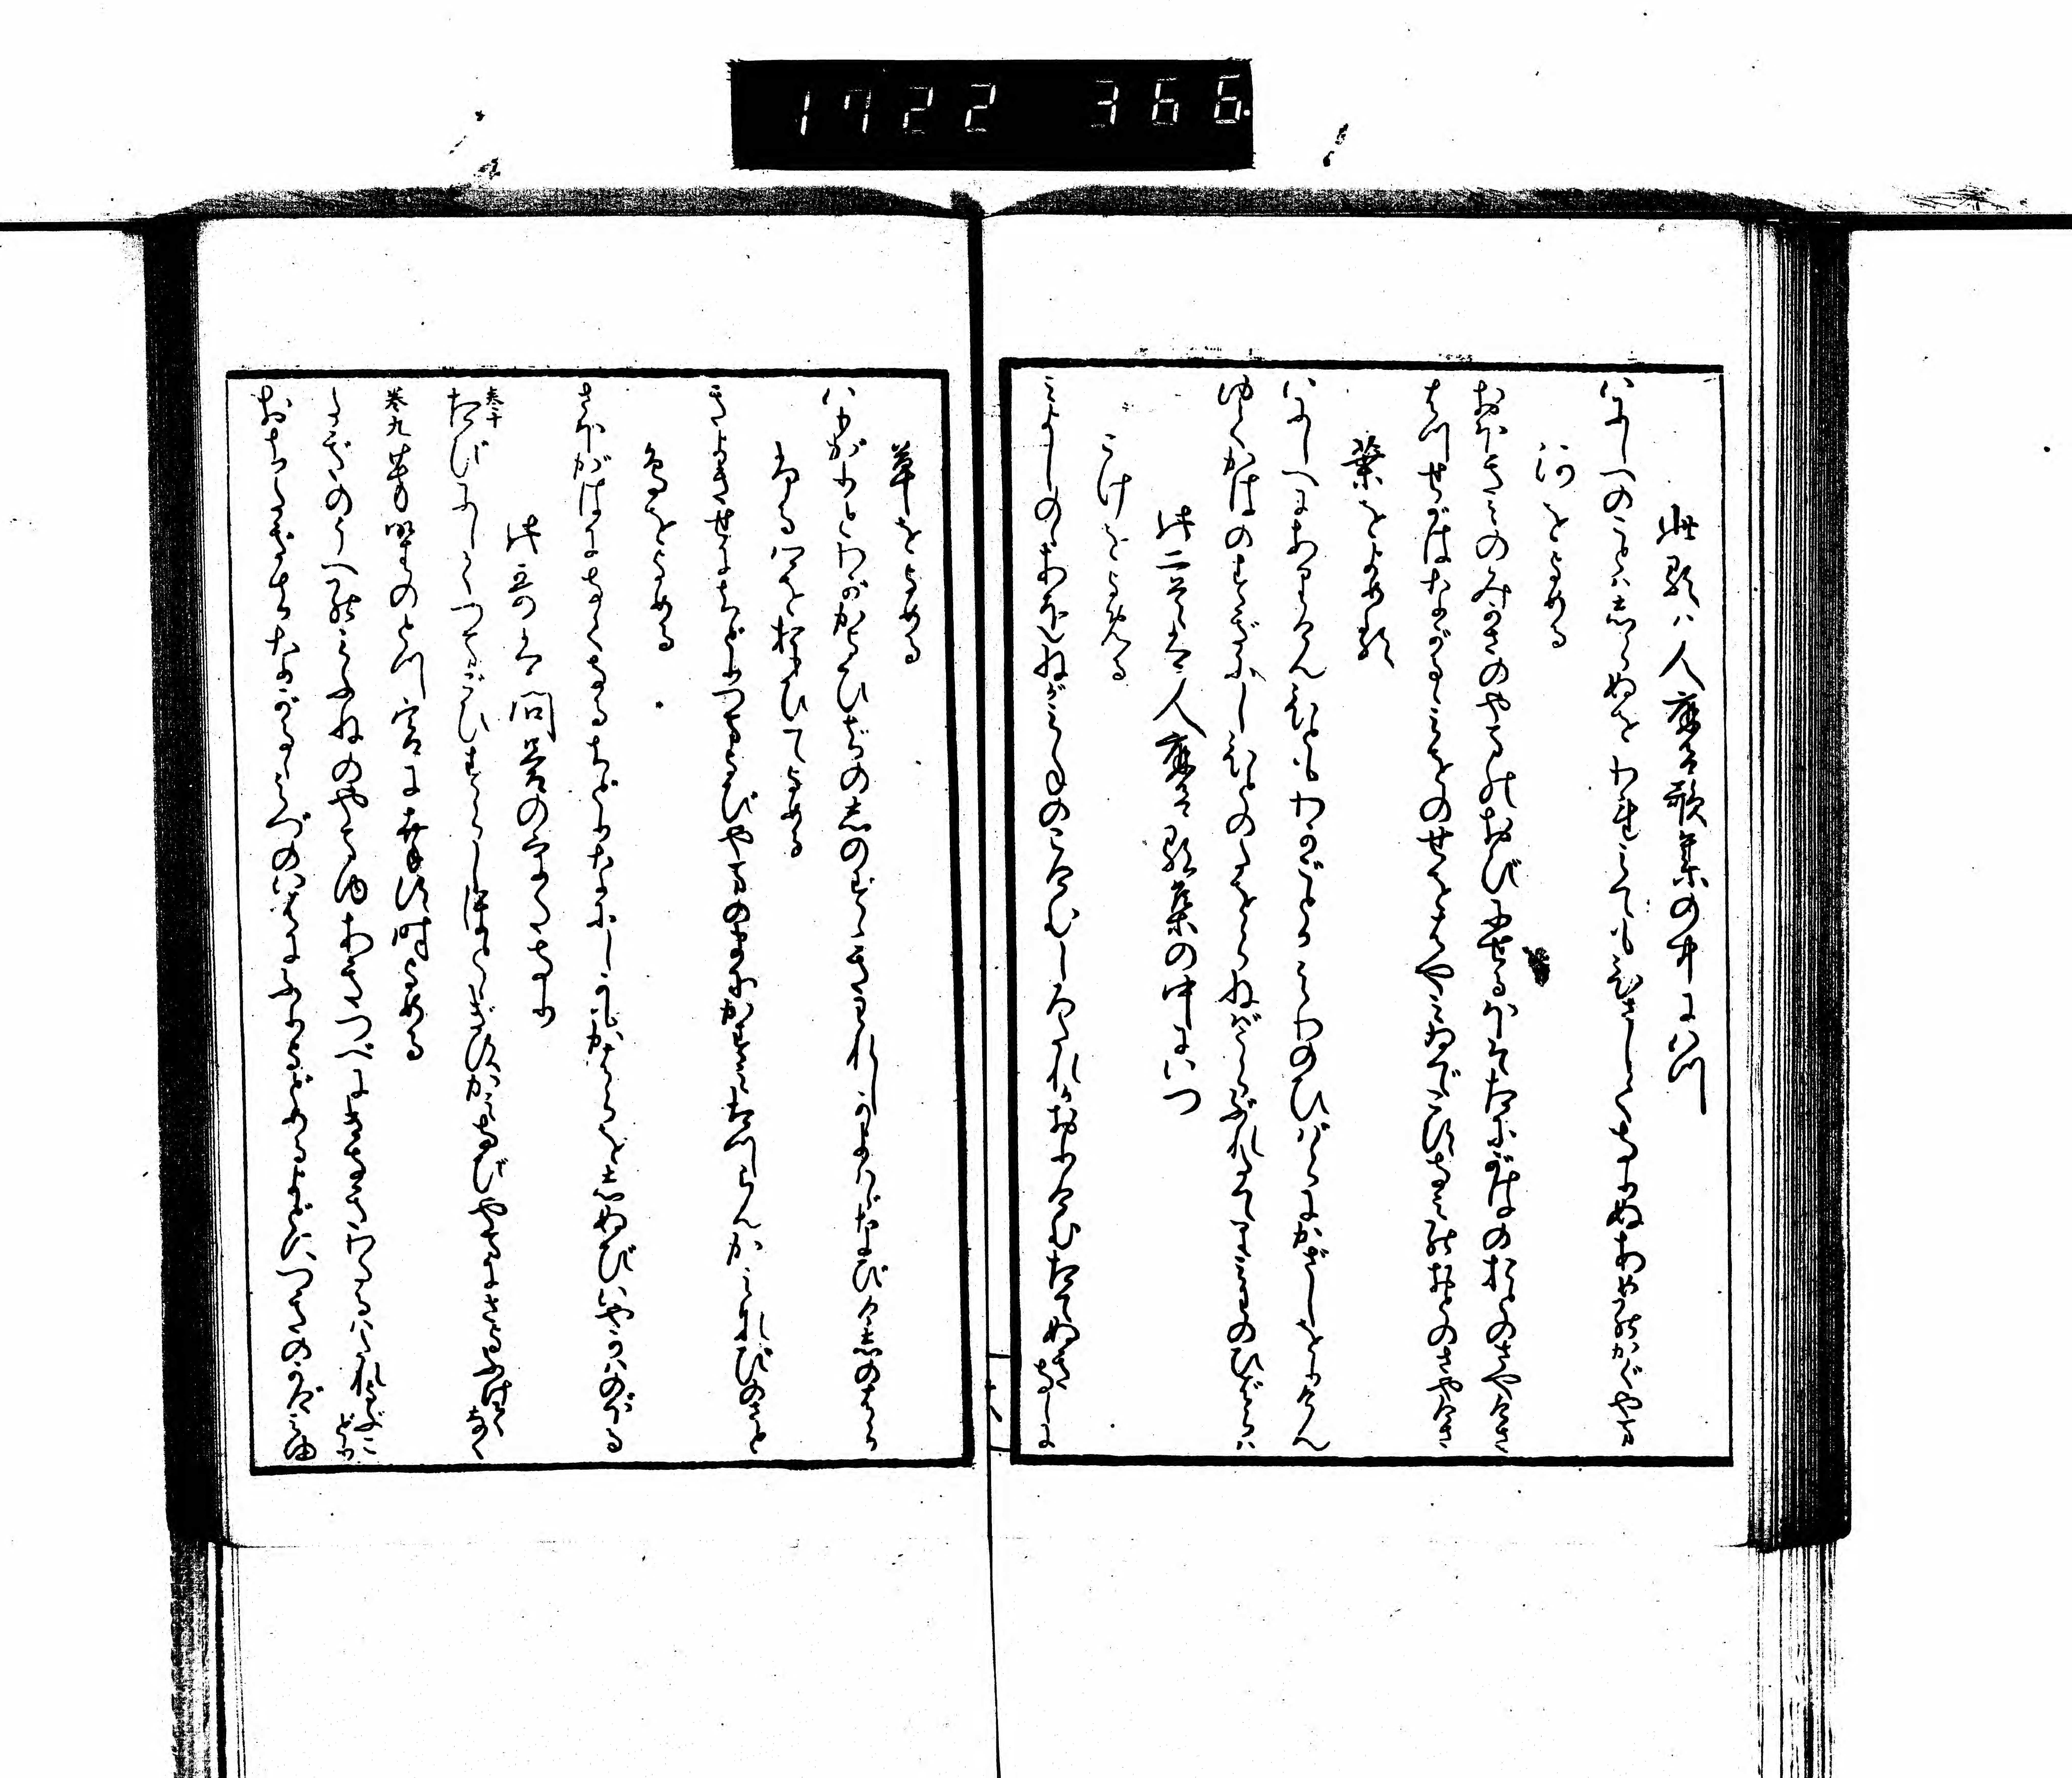 1722 366.
此歌ハ人麿呂歌集の中にいつ
いにしへのことはしらぬをわれみてもひさしくなりぬあめのかぐやま
河をよめる
おほきみのみかさのやまのおびにせるほそたにがはのおとのさやけさ
はつせがはながるゝみをのせをはやみゐでこすなみのおとのさやけさ
葉をよめる歌
いにしへにありけんひともわがごとかみわのひばらにかざしをりけん
ゆくかはのすぎにしひとのたをらねばうらぶれたてりみわのひばらハ
此二首は人麿呂歌集の中にいつ
こけをよめる
みよしのゝあをねがみねのこけむしろたれかおりけむたてぬきなしに
草をよめる
いもがりとわがかよひぢのしのすゝきわれしかよはゞなびけしのはら
おもひてよめる
きよきせにちどりつまよびやまのまにかすみたつらんかみなびのさと
鳥をよめる
さほがはになくなるちどりなにしかもかはらをしぬびいやかはのぼる
此哥は問答の なり
巻十
たびにしてつまごひすらしほとゝぎすかみなびやまにさよふけてなく
巻九 芳野のとつ宮に幸す時よめる
たぎのうへのみふねのやまゆあきつべにきなきわたるハたれよぶこどり
おちたぎちながるゝみづのいはにふれよどめるよどにつきのかげみゆ